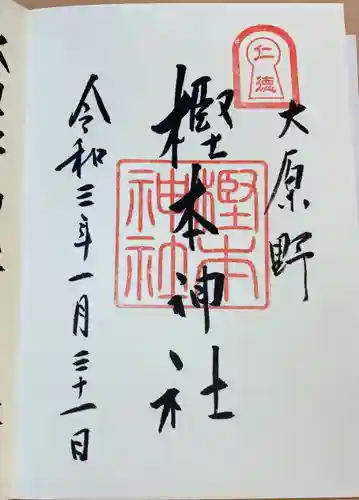 仁徳
大原野
樫本神社
樫本神社
令和三年一月三十一日